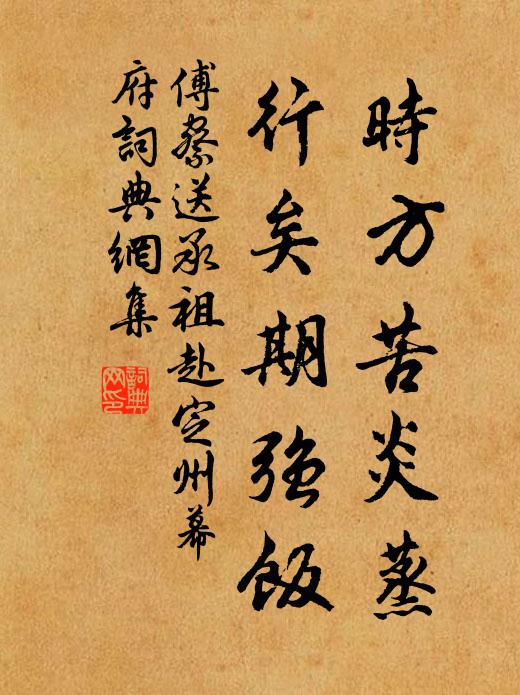 時方苦炎蒸
行矣期強飯
傅察送承祖赴定州幕
府詞典網集
詞典
网印